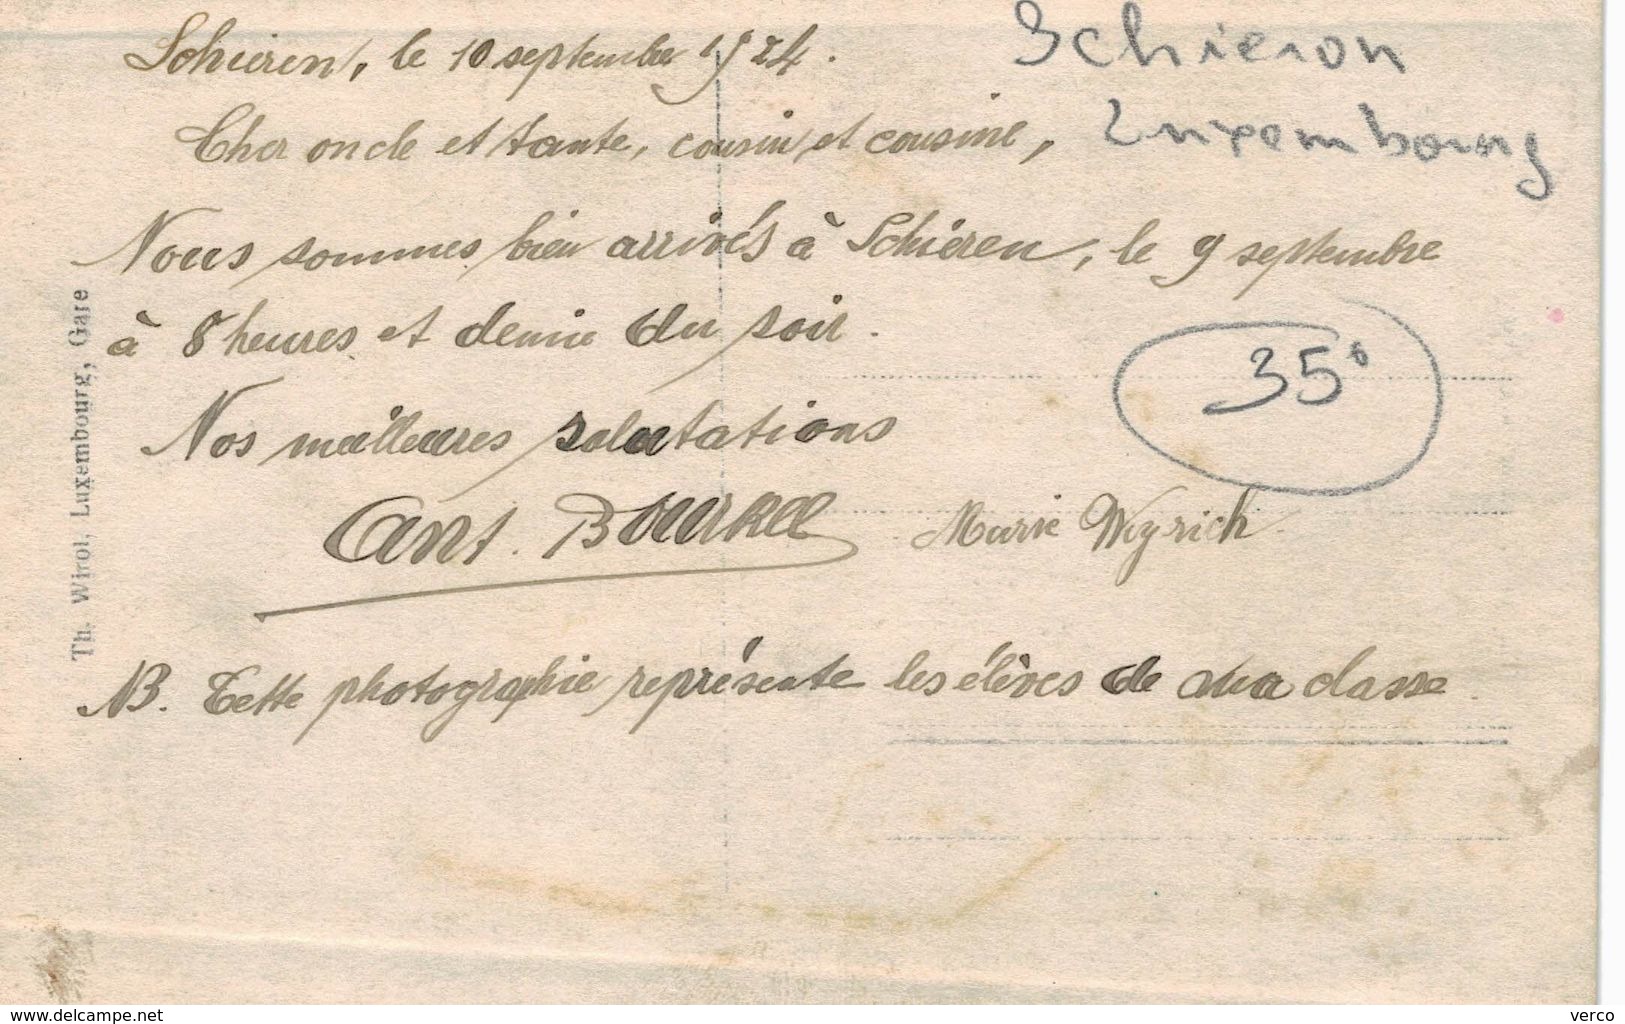 Schieren, le 10 septembre 1924.
Schieron
Luxembourg
Cher oncle et tante, cousin et cousine,
Nous sommes bien arrivés à Schiéren, le 9 septembre
à 8 heures et demie du soir.
35°
Nos meilleures salutations
Ant. Bourkel Marie Weyrich
NB. Cette photographie représente les élèves de ma classe.
Th. Wirol, Luxembourg, Gare
www.delcampe.net
verco